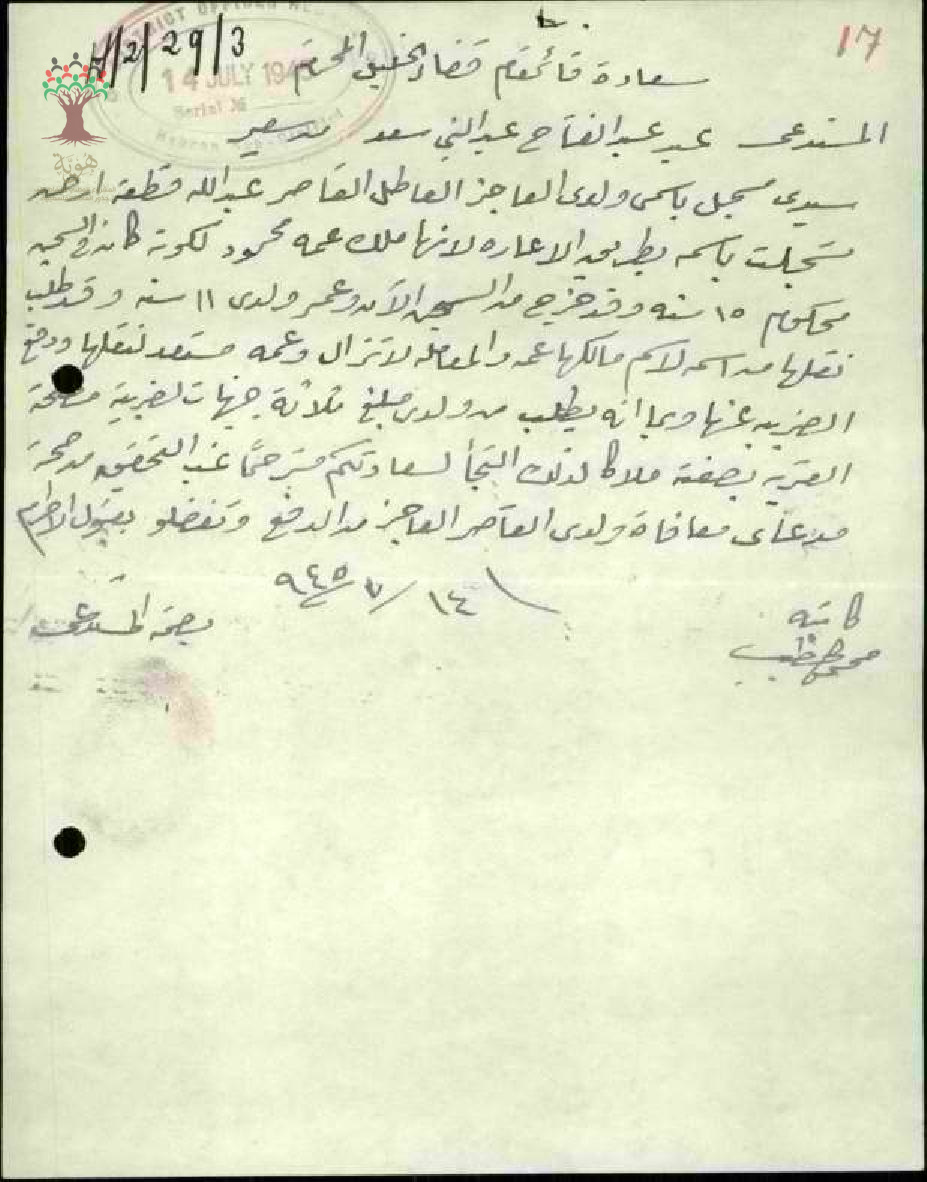 17
H/2/29/3
DISTRICT OFFICER
14 JULY 194
Serial №
Hebron Sub-District
هوية
سعادة قائمقام قضاء الخليل المحترم
المستدعي عبد عبد الفتاح عبد النبي سعد من سعير
سيدي مسجل باسمي ولدي العاجز العاطل القاصر عبد الله قطعة ارض
سجلت باسمه بطريق الاعاره لانها ملك عمه محمود لكونه كان في السجن
محكوم ١٥ سنه وقد خرج من السجن الآن وعمر ولدي ١١ سنه وقد طلب
نقلها من اسمه لاسم مالكها عمه والمعامله لا تزال وعمه مستعد لنقلها ودفع
الضريبه عنها وبما انه يطلب من ولدي مبلغ ثلاثة جنيهات لضريبة مصلحة
القريه بصفته ملاكا لذلك التجأ لسعادتكم مسترحما غب التحقيق من صحة
مدعاي معافاة ولدي القاصر العاجز من الدفع وتفضلو بقبول الاحترام
١٤/٧/٩٤٥
كاتبه
بصمة المستدعي